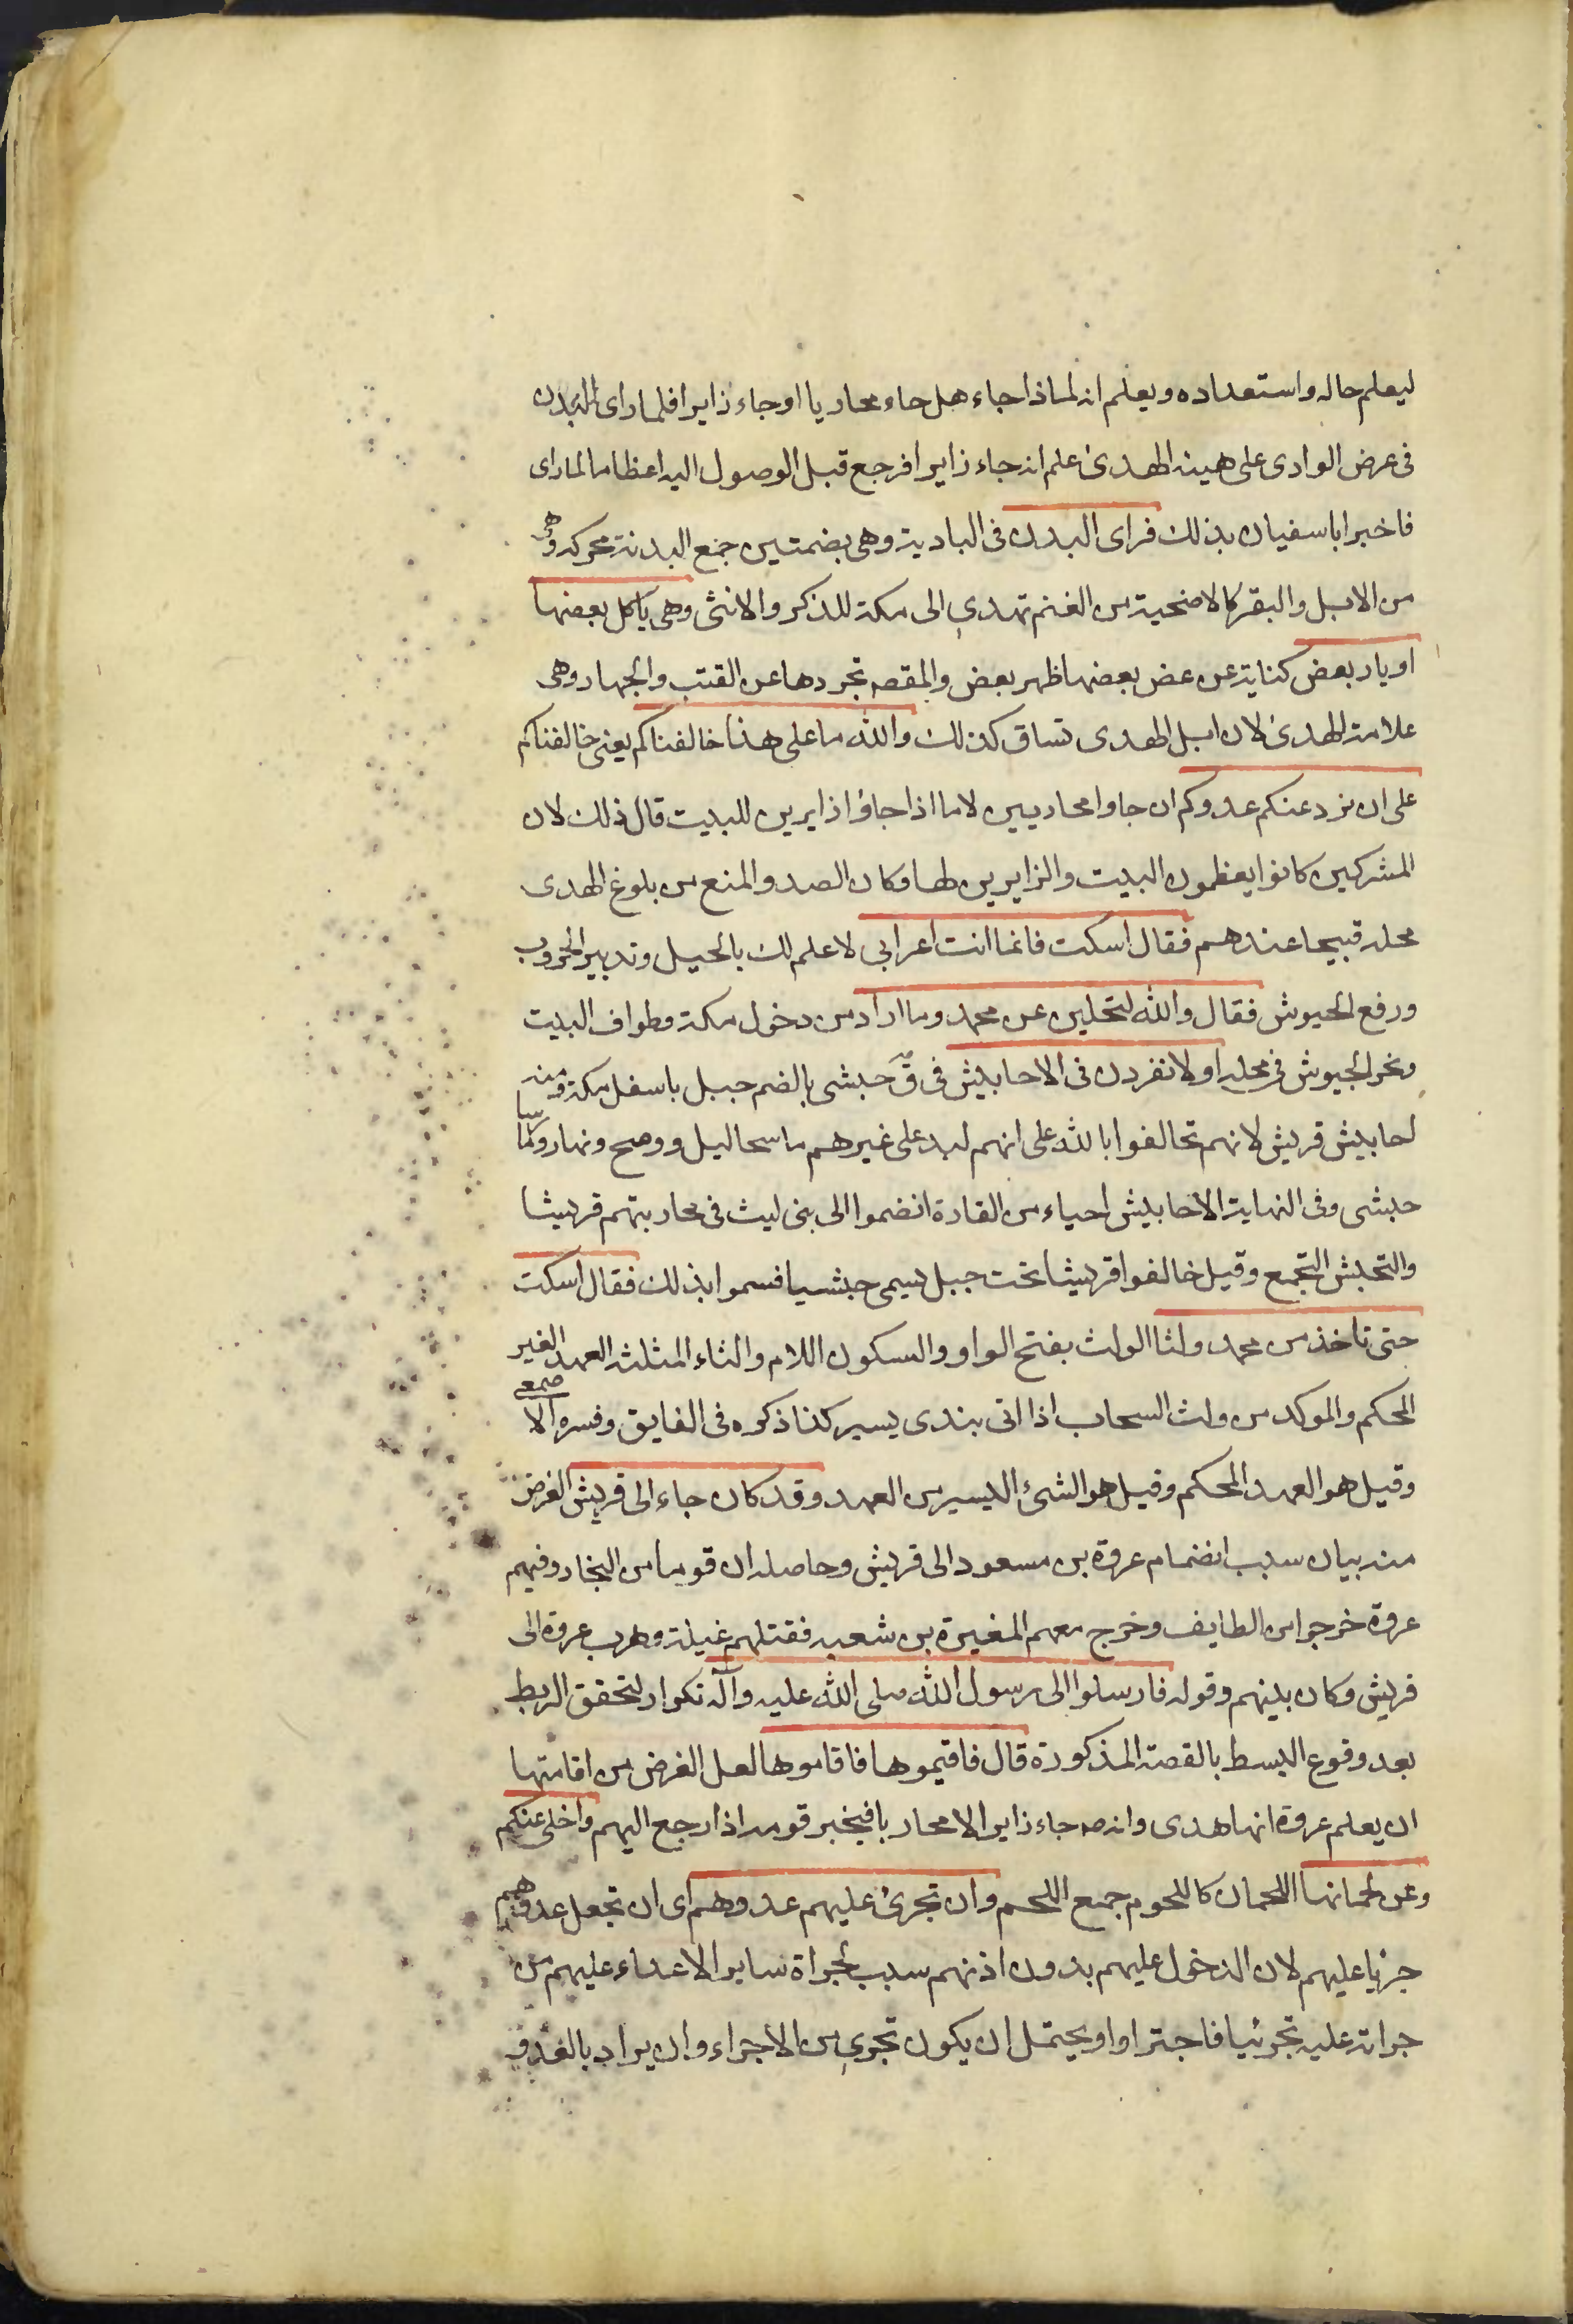 ليعلم حاله واستعداده ويعلم انه لماذا جاء هل جاء محاربا او جاء زايرا فلما رای البدن
فی عرض الوادی علی هيئة الهدی علم انه جاء زايرا فرجع قبل الوصول اليه اعظاما لما رای
فاخبر ابا سفيان بذلك فرای البدن فی البادية وهی بضمتين جمع البدنة محركة وهی
من الابل والبقر كالاضحية من الغنم تهدی الی مكة للذكر والانثی وهی ياكل بعضها
اوبار بعض كناية عن عض بعضها ظهر بعض والمقصه تجردها عن القتب والجهاز وهی
علامة الهدی لان ابل الهدی تساق كذلك والله ما علی هذا خالفناكم يعنی خالفناكم
علی ان نرد عنكم عدوكم ان جاوا محاربين لا ما اذا جاؤا زايرين للبيت قال ذلك لان
المشركين كانوا يعظمون البيت والزايرين لها وكان الصد والمنع من بلوغ الهدی
محله قبيحا عندهم فقال اسكت فانما انت اعرابی لا علم لك بالحيل وتدبير الحروب
ورفع الجيوش فقال والله لتخلين عن محمد وما اراد من دخول مكة وطواف البيت
ونحر الجيوش فی محله او لانفردن فی الاحابيش فی ق حبشی بالضم جبل باسفل مكة ومنه
احابيش قريش لانهم تحالفوا بالله علی انهم ليد علی غيرهم ما سجا ليل ووضح ونهار وما رسا
حبشی وفی النهاية الاحابيش احياء من القارة انضموا الی بنی ليث فی محاربتهم قريشا
والتحبش التجمع وقيل خالفوا قريشا تحت جبل يسمی حبشيا فسموا بذلك فقال اسكت
حتی ناخذ من محمد ولثا الولث بفتح الواو والسكون اللام والثاء المثلثه العهد الغير
المحكم والموكد من ولث السحاب اذا اتی بندی يسير كذا ذكره فی الفايق وفسره الاصمعی
وقيل هو العهد المحكم وقيل هو الشئ اليسير من العهد وقد كان جاء الی قريش الغرض
منه بيان سبب انضمام عروة بن مسعود الی قريش وحاصله ان قوما من التجار وفيهم
عروة خرجوا من الطايف وخرج معهم المغيرة بن شعبه فقتلهم غيلة وهرب عروة الی
قريش وكان بينهم وقوله فارسلوا الی رسول الله صلی الله عليه وآله تكرار لتحقق الربط
بعد وقوع البسط بالقصة المذكورة قال فاقيموها فاقاموها لعل الغرض من اقامتها
ان يعلم عروة انها هدی وانه صه جاء زايرا لا محاربا فيخبر قومه اذا رجع اليهم واخلی عنكم
وعن لحمانها اللحمان كاللحوم جمع اللحم وان تجرئ عليهم عدوهم ای ان تجعل عدوهم
جريا عليهم لان الدخول عليهم بدون اذنهم سبب لجراة ساير الاعداء عليهم من
جراته عليه تجرئيا فاجترا واو يحتمل ان يكون تجری من الاجراء وان يراد بالعدو